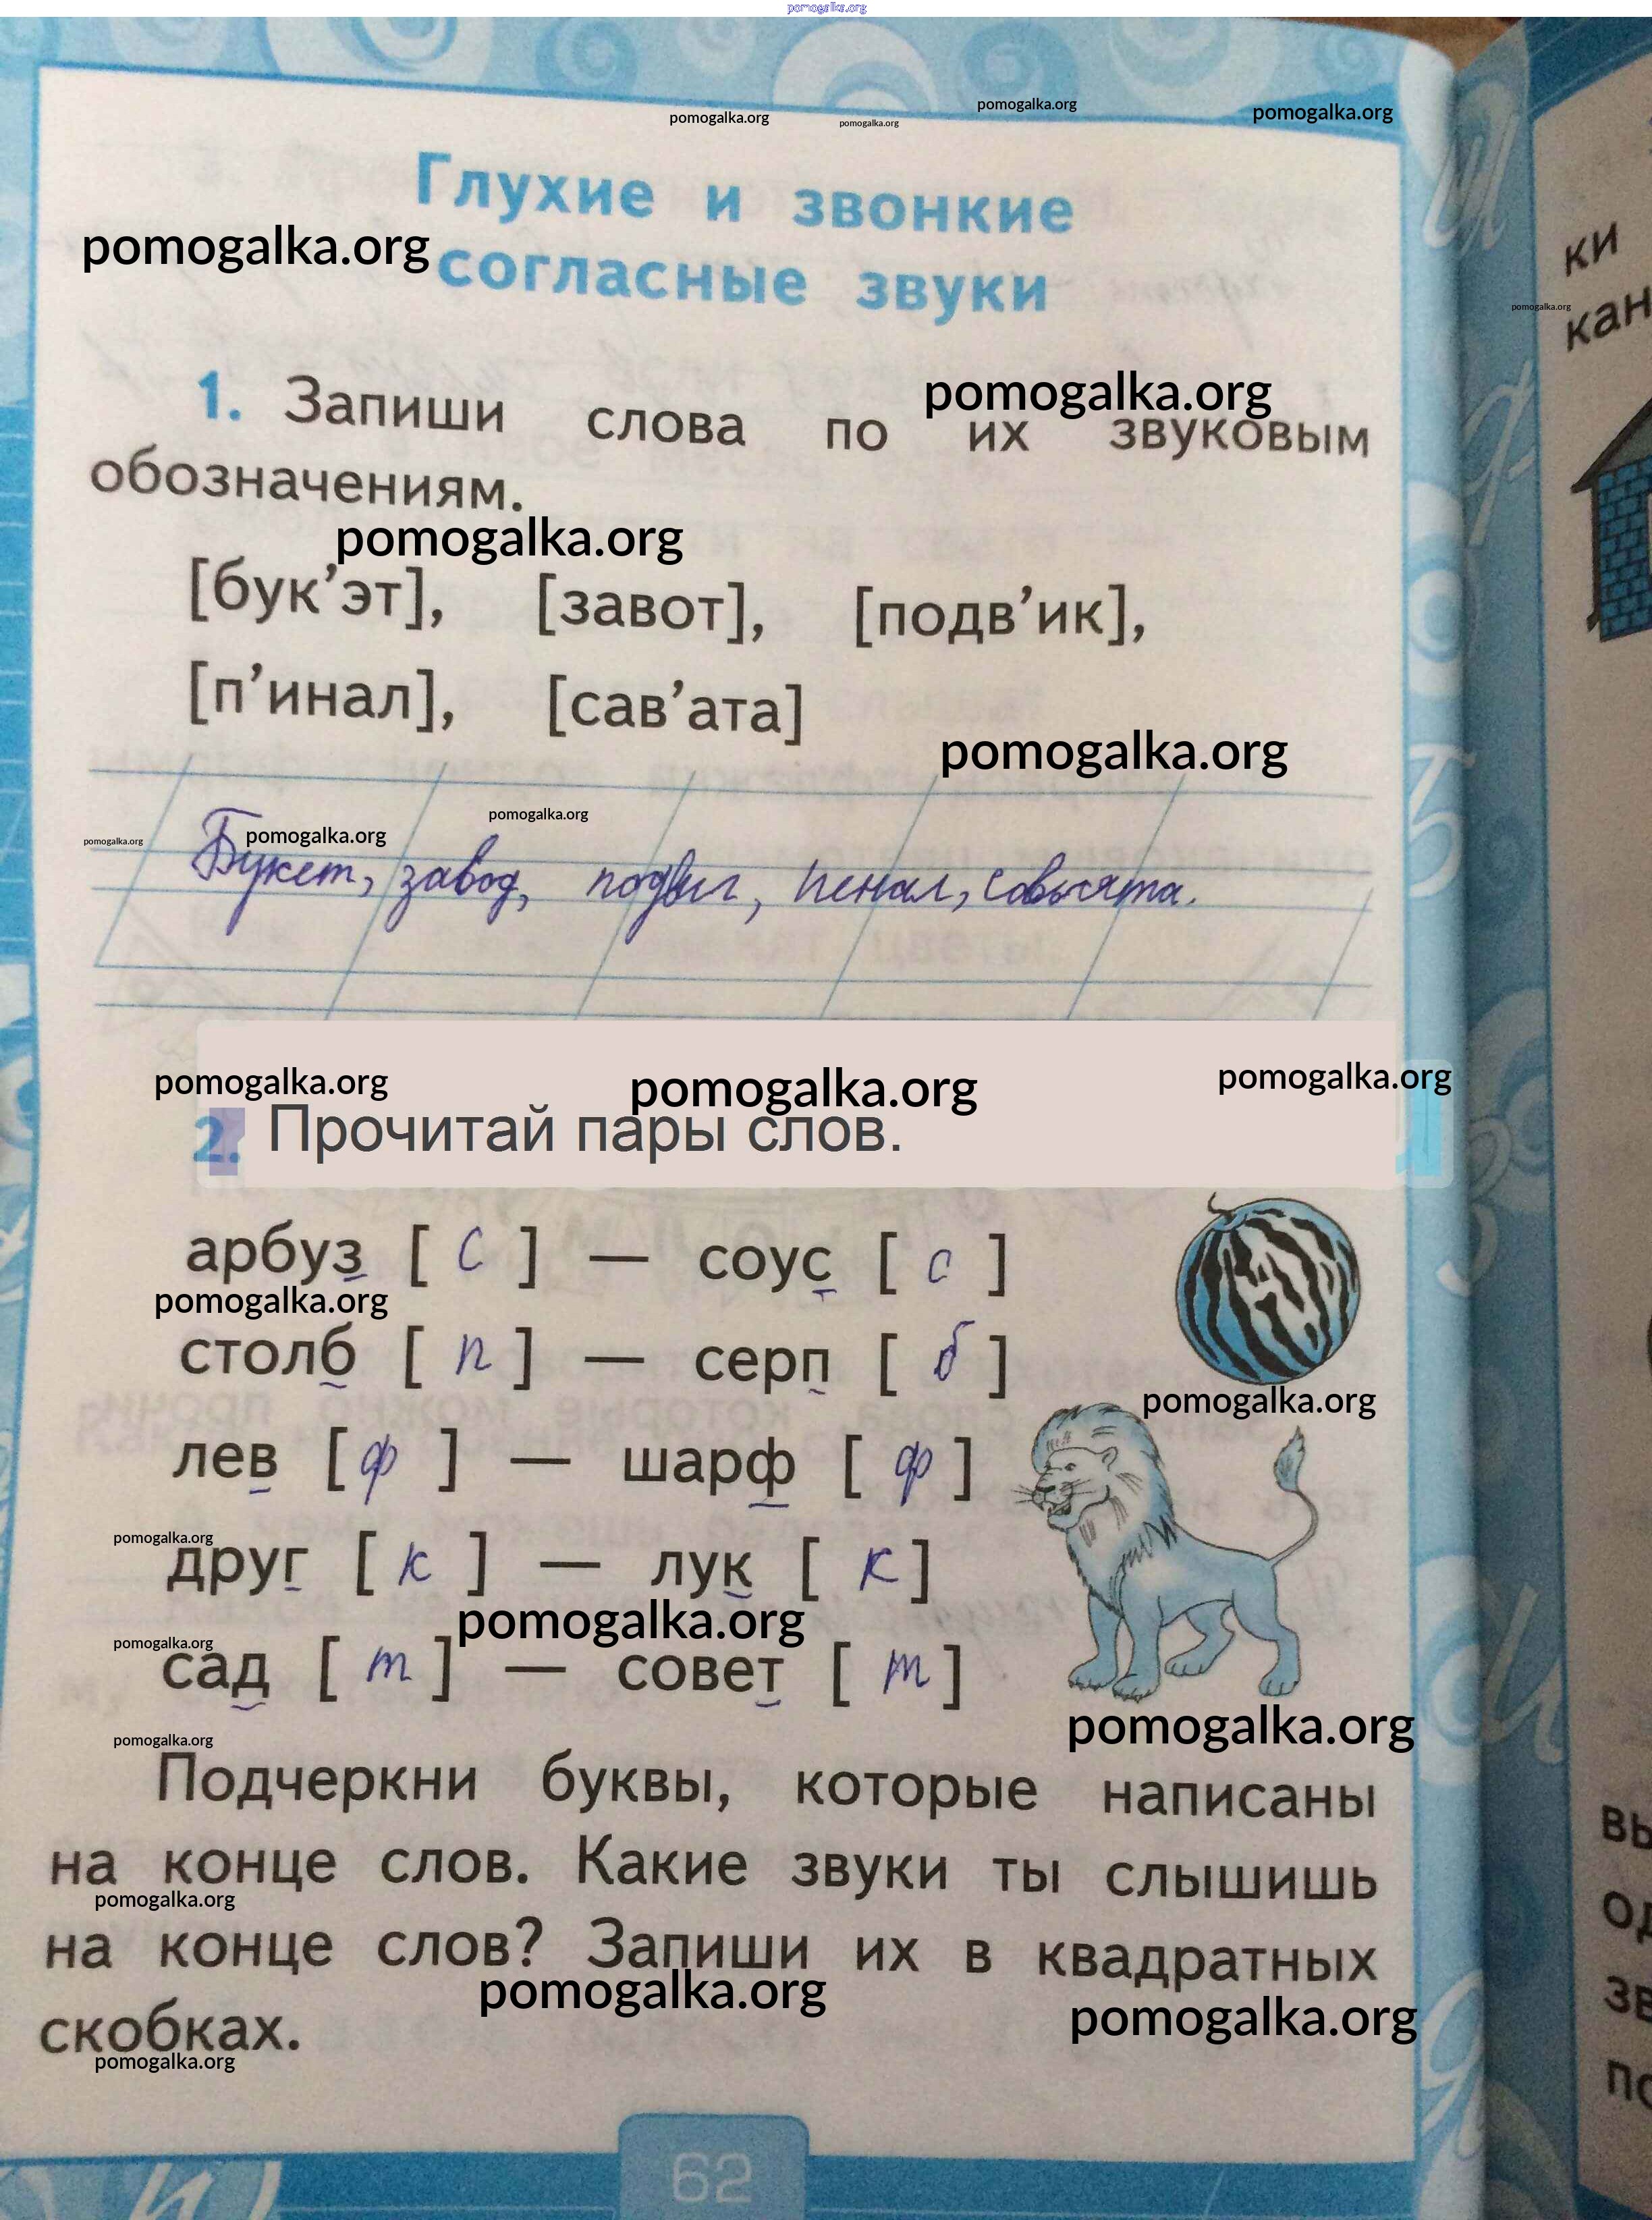 pomogalka.org
pomogalka.org
pomogalka.org
pomogalka.org
pomogalka.org
Глухие и звонкие
pomogalka.org
согласные звуки
ки
pomogalka.org
кан
pomogalka.org
1. Запиши слова по их звуковым
обозначениям.
pomogalka.org
[бук’эт], [завот], [подв’ик],
[п’инал], [сав’ата]
pomogalka.org
pomogalka.org
pomogalka.org
pomogalka.org
Букет, завод, подвиг, пенал,
pomogalka.org
pomogalka.org
pomogalka.org
2. Прочитай пары слов.
арбуз [ с ] — соус [ с ]
pomogalka.org
столб [ п ] — серп [ б ]
pomogalka.org
лев [ ф ] — шарф [ ф ]
pomogalka.org
друг [ к ] — лук [ к ]
pomogalka.org
pomogalka.org
сад [ т ] — совет [ т ]
pomogalka.org
pomogalka.org
Подчеркни буквы, которые написаны
на конце слов. Какие звуки ты слышишь
pomogalka.org
на конце слов? Запиши их в квадратных
pomogalka.org
pomogalka.org
скобках.
pomogalka.org
62